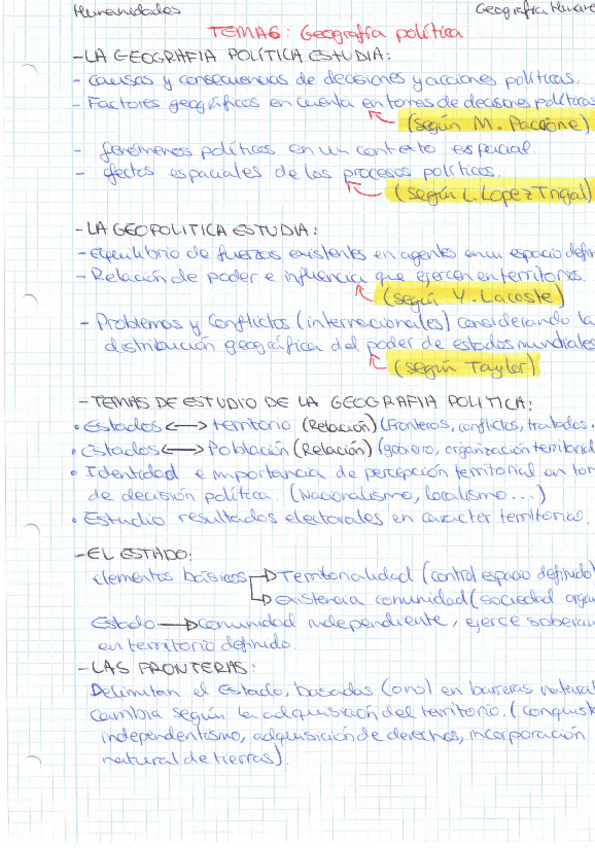 Humanidades Geografía Humana
TEMA 6: Geografía política
-LA GEOGRAFIA POLÍTICA ESTUDIA:
- causas y consecuencias de decisiones y acciones políticas.
- Factores geográficos en cuenta en tomas de decisiones políticas
(según M. Paccione)
- fenómenos políticos en un contexto espacial.
- efectos espaciales de los procesos políticos.
(según L. Lopez Trigal)
-LA GEOPOLITICA ESTUDIA:
-equilibrio de fuerzas existentes en agentes en un espacio defin
-Relación de poder e influencia que ejercen en territorios.
(según Y. Lacoste)
- Problemas y conflictos (internacionales) considerando la
distribución geográfica del poder de estados mundiales
(según Taylor)
-TEMAS DE ESTUDIO DE LA GEOGRAFIA POLITICA:
• Estados <--> territorio (Relación) (Fronteras, conflictos, tratados.
• Estados <--> Población (Relación) (gobierno, organización territorial
• Identidad e importancia de percepción territorial en tom
de decisión política. (Nacionalismo, localismo...)
• Estudio resultados electorales en carácter territorial.
-EL ESTADO:
elementos básicos → Territorialidad (control espacio definido)
→ existencia comunidad (sociedad orga
Estado → comunidad independiente, ejerce soberan
en territorio definido.
-LAS FRONTERAS:
Delimitan el estado, basadas (o no) en barreras natural
cambia según la adquisición del territorio. (conquist
independentismo, adquisición de derechos, incorporación
natural de tierras)